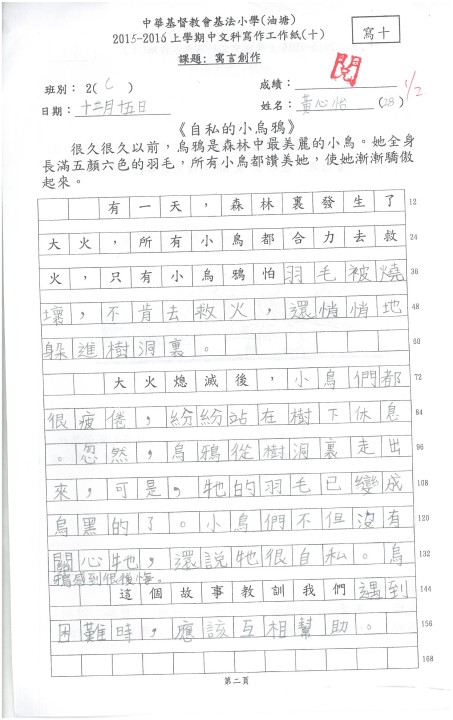 中華基督教會基法小學(油塘)
2015-2016上學期中文科寫作工作紙(十)
寫十
課題: 寓言創作
閱
班別： 2( C )
成績：
1/2
日期： 十二月十五日
姓名： 黃心怡 (28)
《自私的小烏鴉》
很久很久以前，烏鴉是森林中最美麗的小鳥。她全身
長滿五顏六色的羽毛，所有小鳥都讚美她，使她漸漸驕傲
起來。
有一天，森林裏發生了 12
大火，所有小鳥都合力去救 24
火，只有小烏鴉怕羽毛被燒 36
壞，不肯去救火，還悄悄地 48
躲進樹洞裏。 60
大火熄滅後，小鳥們都 72
很疲倦，紛紛站在樹下休息 84
。忽然，烏鴉從樹洞裏走出 96
來，可是，牠的羽毛已變成 108
烏黑的了。小鳥們不但沒有 120
關心牠，還說牠很自私。烏 132
鴉感到很後悔。
這個故事教訓我們遇到 144
困難時，應該互相幫助。 156
168
第二頁